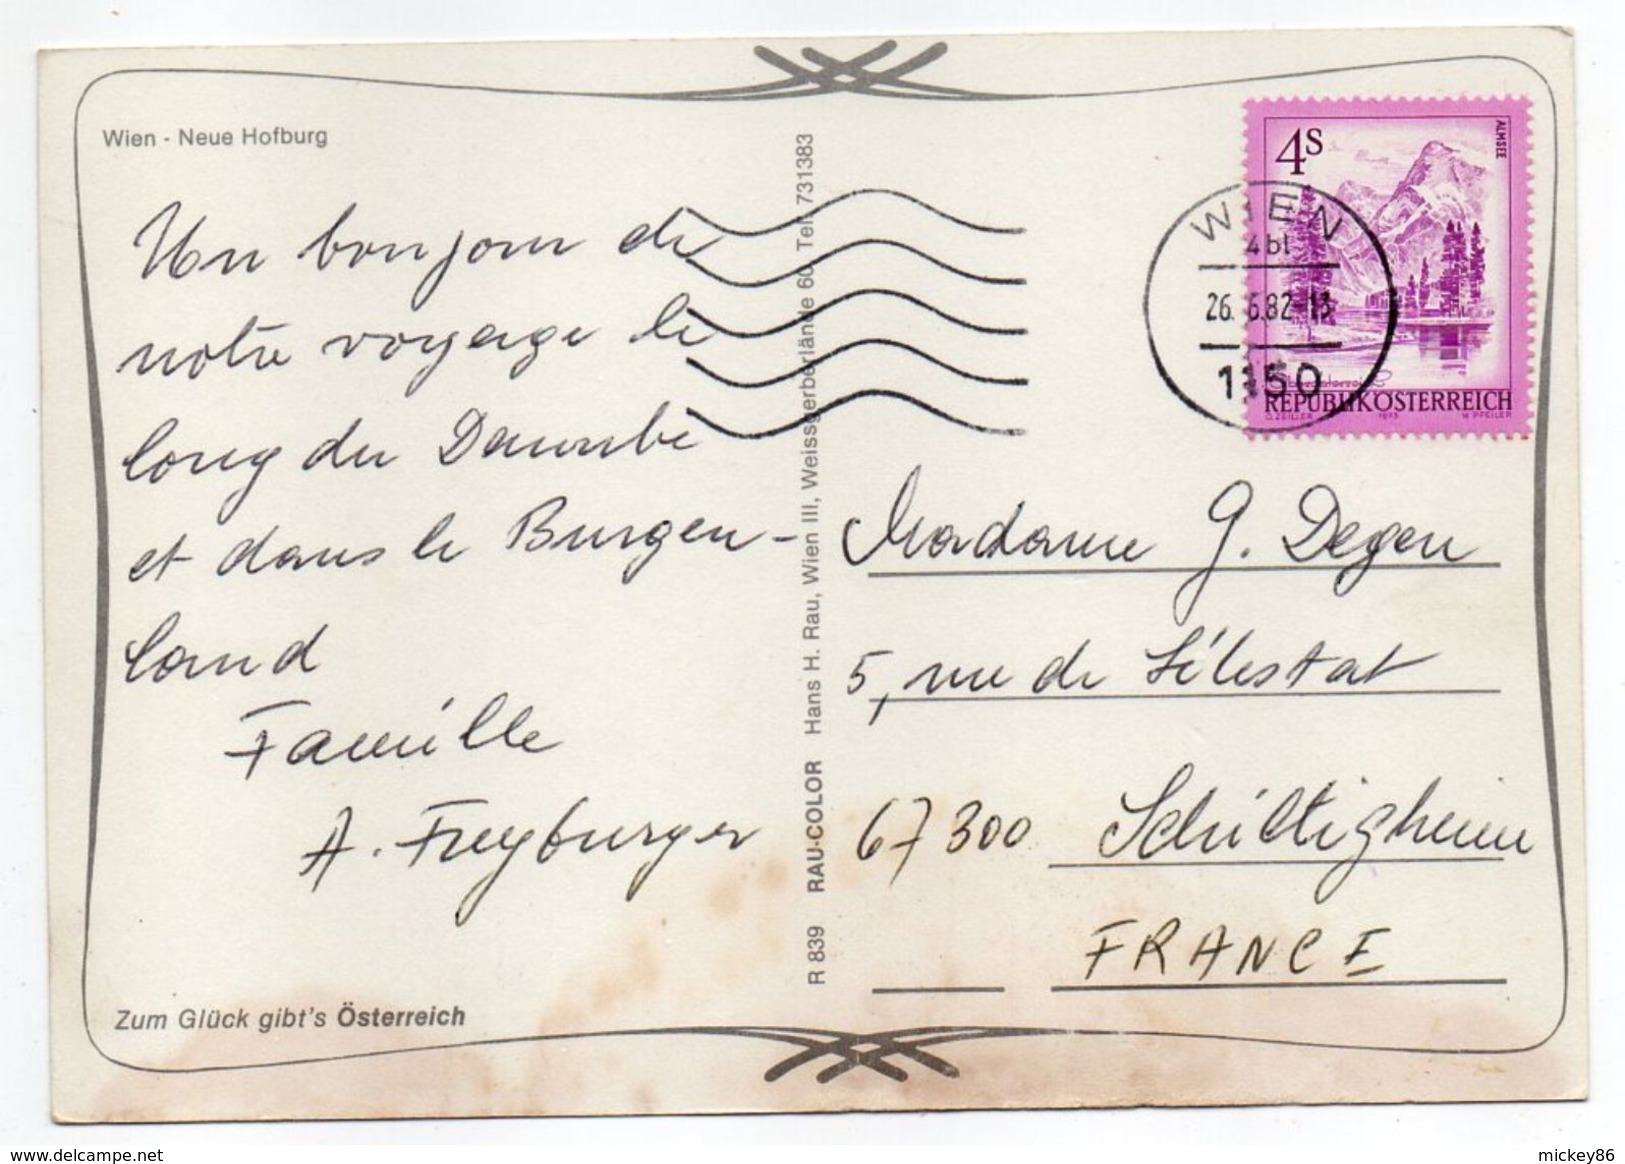 Wien - Neue Hofburg
Un bonjour de
notre voyage le
long du Danube
et dans le Burgen-
land
Famille
A. Freyburger
Zum Glück gibt's Österreich
R 839 RAU-COLOR Hans H. Rau, Wien III, Weissgerberlände 60, Tel. 731383
4S
ALMSEE
REPUBLIK ÖSTERREICH
O.ZEILLER 1973 W.PFEILER
WIEN
26. 6.82-13
1150
Madame G. Degen
5, rue de Sélestat
67300 Schiltigheim
FRANCE
www.delcampe.net
mickey86